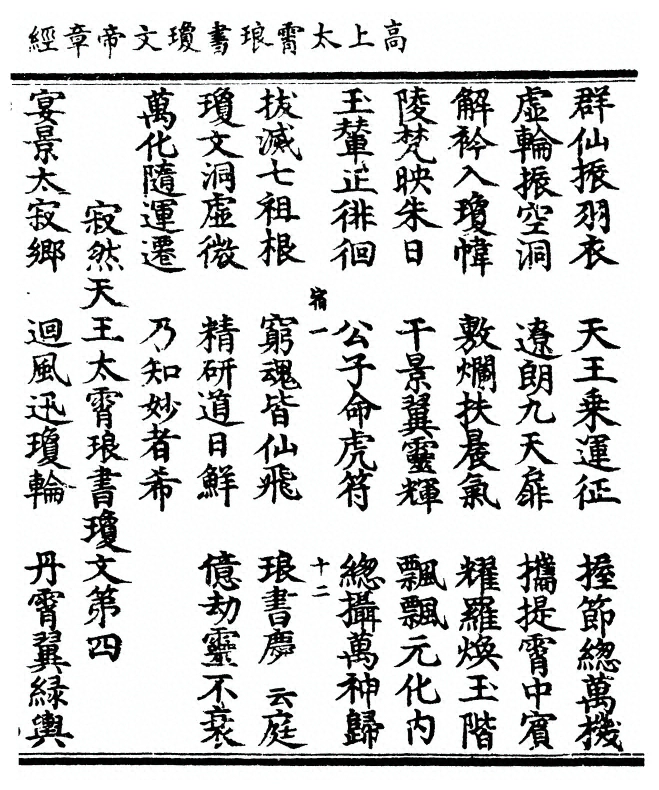 高上太霄琅書瓊文帝章經
群仙振羽衣 天王乗運征 握節緫萬機
虛輪振空洞 遼朗九天扉 攜提霄中賓
解衿入瓊幃 敷爛扶晨氣 耀羅煥玉階
陵梵映朱日 千景翼靈輝 飄飄元化内
玉輦正徘徊 公子命虎符 緫攝萬神歸
宿一 十二
拔滅七祖根 窮魂皆仙飛 琅書慶云庭
瓊文洞虛微 精研道日鮮 億劫靈不衰
萬化隨運遷 乃知妙者希
寂然天王太霄琅書瓊文第四
宴景太寂鄉 迴風迅瓊輪 丹霄翼緑輿